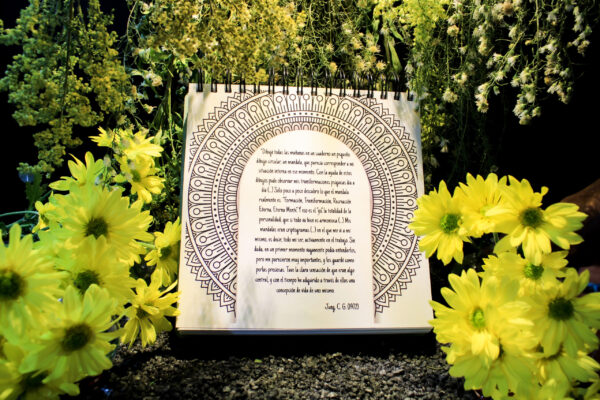 Dibujé todas las mañanas en un cuaderno un pequeño
dibujo circular, un mandala, que parecía corresponder a mi
situación interna en ese momento. Con la ayuda de estos
dibujos pude observar mis transformaciones psíquicas día a
día (...) Sólo poco a poco descubrí lo que el mandala
realmente es: "Formación, Transformación, Recreación
Eterna, Eterna Mente." Y eso es el "yo", la totalidad de la
personalidad, que si todo va bien es armoniosa (...) Mis
mandalas eran criptogramas (...) en el que me vi a mi
mismo, es decir, todo mi ser, activamente en el trabajo. Sin
duda, en un primer momento vagamente podía entenderlos,
pero me parecieron muy importantes, y los guardé como
perlas preciosas. Tuve la clara sensación de que eran algo
central, y con el tiempo he adquirido a través de ellos una
concepción de vida de uno mismo.
Jung, C. G.